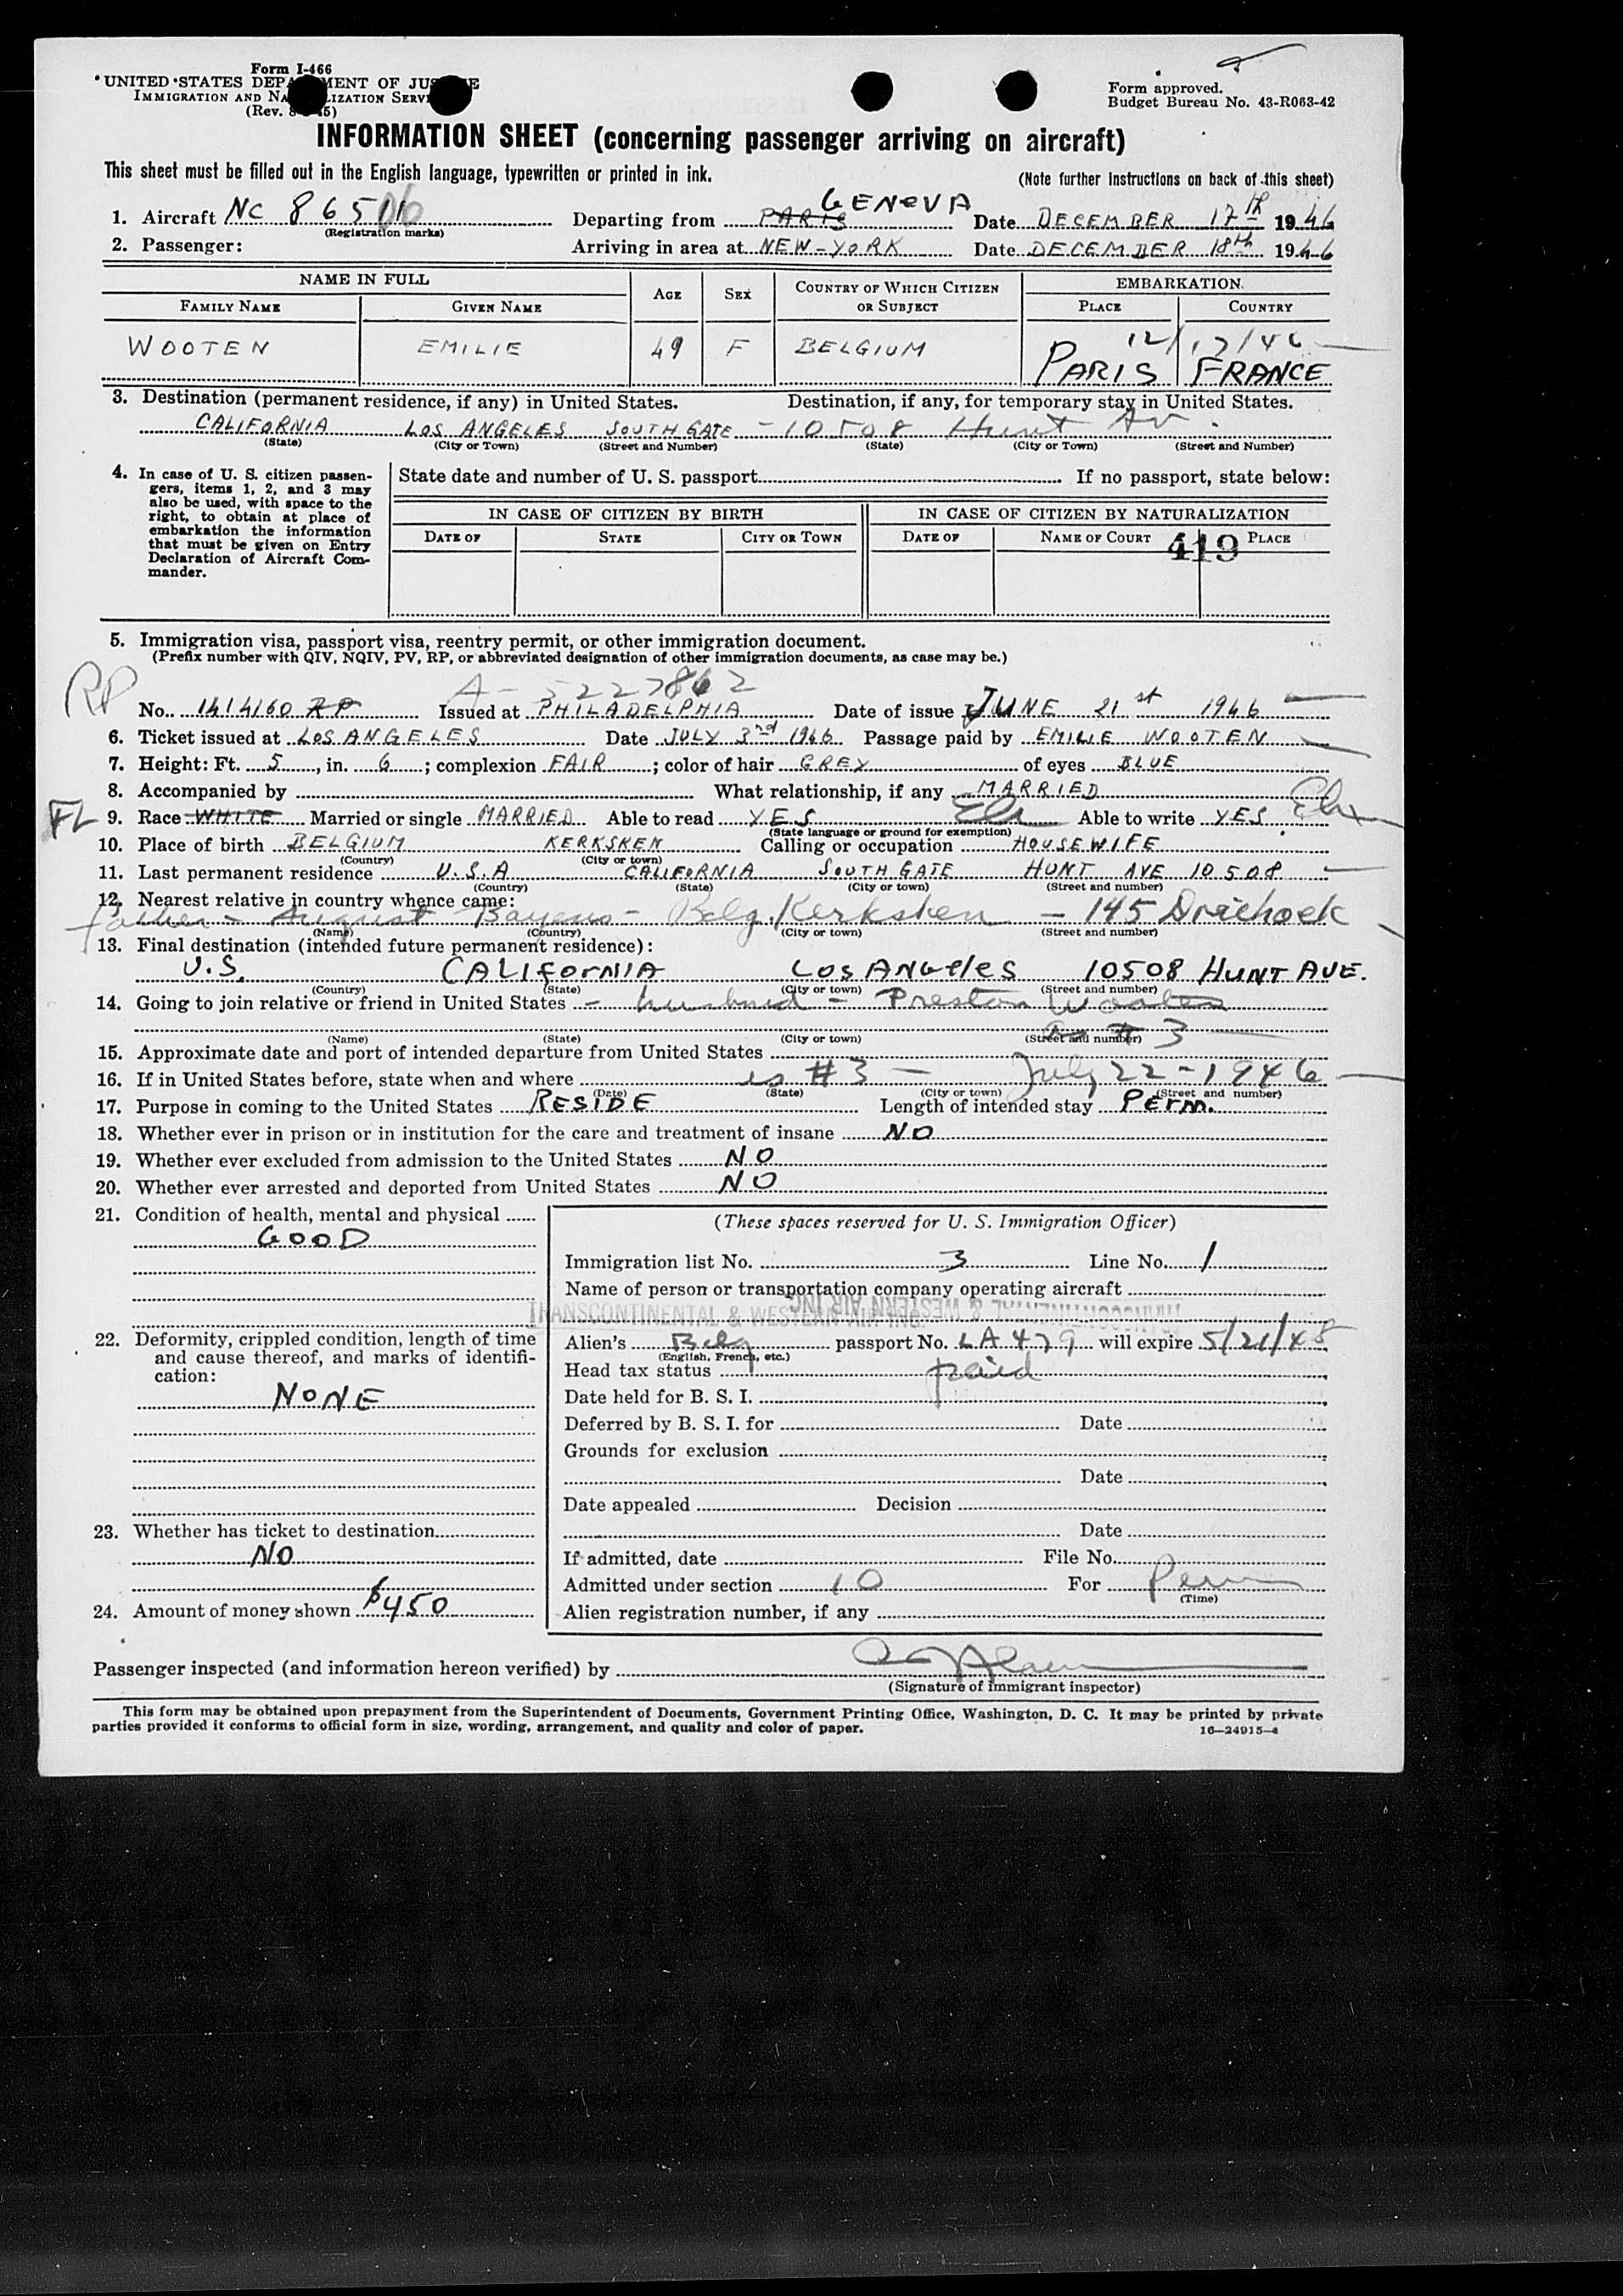 Form I-466
UNITED STATES DEPARTMENT OF JUSTICE
IMMIGRATION AND NATURALIZATION SERVICE
(Rev. 8 45)
Form approved.
Budget Bureau No. 43-R063-42
INFORMATION SHEET (concerning passenger arriving on aircraft)
This sheet must be filled out in the English language, typewritten or printed in ink.
(Note further instructions on back of this sheet)
1. Aircraft NC 86506 Departing from PARIS GENEVA Date DECEMBER 17th 1946
(Registration marks)
2. Passenger: Arriving in area at NEW-YORK Date DECEMBER 18th 1946
NAME IN FULL AGE SEX COUNTRY OF WHICH CITIZEN OR SUBJECT EMBARKATION
FAMILY NAME GIVEN NAME PLACE COUNTRY
12/17/46
WOOTEN EMILIE 49 F BELGIUM PARIS FRANCE
3. Destination (permanent residence, if any) in United States. Destination, if any, for temporary stay in United States.
CALIFORNIA LOS ANGELES SOUTH GATE - 10508 Hunt Av.
(State) (City or Town) (Street and Number) (State) (City or Town) (Street and Number)
4. In case of U. S. citizen passengers, items 1, 2, and 3 may also be used, with space to the right, to obtain at place of embarkation the information that must be given on Entry Declaration of Aircraft Commander.
State date and number of U. S. passport If no passport, state below:
IN CASE OF CITIZEN BY BIRTH IN CASE OF CITIZEN BY NATURALIZATION
DATE OF STATE CITY OR TOWN DATE OF NAME OF COURT PLACE
419
5. Immigration visa, passport visa, reentry permit, or other immigration document.
(Prefix number with QIV, NQIV, PV, RP, or abbreviated designation of other immigration documents, as case may be.)
RP A-5227862
No. 1414160 RP Issued at PHILADELPHIA Date of issue JUNE 21st 1946
6. Ticket issued at LOS ANGELES Date JULY 3rd 1946 Passage paid by EMILIE WOOTEN
7. Height: Ft. 5, in. 6; complexion FAIR; color of hair GREY of eyes BLUE
8. Accompanied by What relationship, if any MARRIED
FL 9. Race WHITE Married or single MARRIED Able to read YES Able to write YES
(State language or ground for exemption)
10. Place of birth BELGIUM KERKSKEN Calling or occupation HOUSEWIFE
(Country) (City or town)
11. Last permanent residence U.S.A CALIFORNIA SOUTH GATE HUNT AVE 10508
(Country) (State) (City or town) (Street and number)
12. Nearest relative in country whence came:
father - August Bayens - Belg. Kerksken - 145 Driehoek
(Name) (Country) (City or town) (Street and number)
13. Final destination (intended future permanent residence):
U.S. CALIFORNIA LOS ANGELES 10508 HUNT AVE.
(Country) (State) (City or town) (Street and number)
14. Going to join relative or friend in United States - husband - Preston Wooten
as # 3
(Name) (State) (City or town) (Street and number)
15. Approximate date and port of intended departure from United States
16. If in United States before, state when and where as #3 - July 22-1946
(Date) (State) (City or town) (Street and number)
17. Purpose in coming to the United States RESIDE Length of intended stay PERM.
18. Whether ever in prison or in institution for the care and treatment of insane NO
19. Whether ever excluded from admission to the United States NO
20. Whether ever arrested and deported from United States NO
21. Condition of health, mental and physical
GOOD
22. Deformity, crippled condition, length of time and cause thereof, and marks of identification:
NONE
23. Whether has ticket to destination
NO
24. Amount of money shown $450
(These spaces reserved for U. S. Immigration Officer)
Immigration list No. 3 Line No. 1
Name of person or transportation company operating aircraft
TRANSCONTINENTAL & WESTERN AIR INC.
Alien's Belg passport No. LA 479 will expire 5/21/48
(English, French, etc.)
Head tax status paid
Date held for B. S. I.
Deferred by B. S. I. for Date
Grounds for exclusion
Date
Date appealed Decision
Date
If admitted, date File No.
Admitted under section 10 For Perm
(Time)
Alien registration number, if any
Passenger inspected (and information hereon verified) by
(Signature of immigrant inspector)
This form may be obtained upon prepayment from the Superintendent of Documents, Government Printing Office, Washington, D. C. It may be printed by private
parties provided it conforms to official form in size, wording, arrangement, and quality and color of paper. 16—24915-4